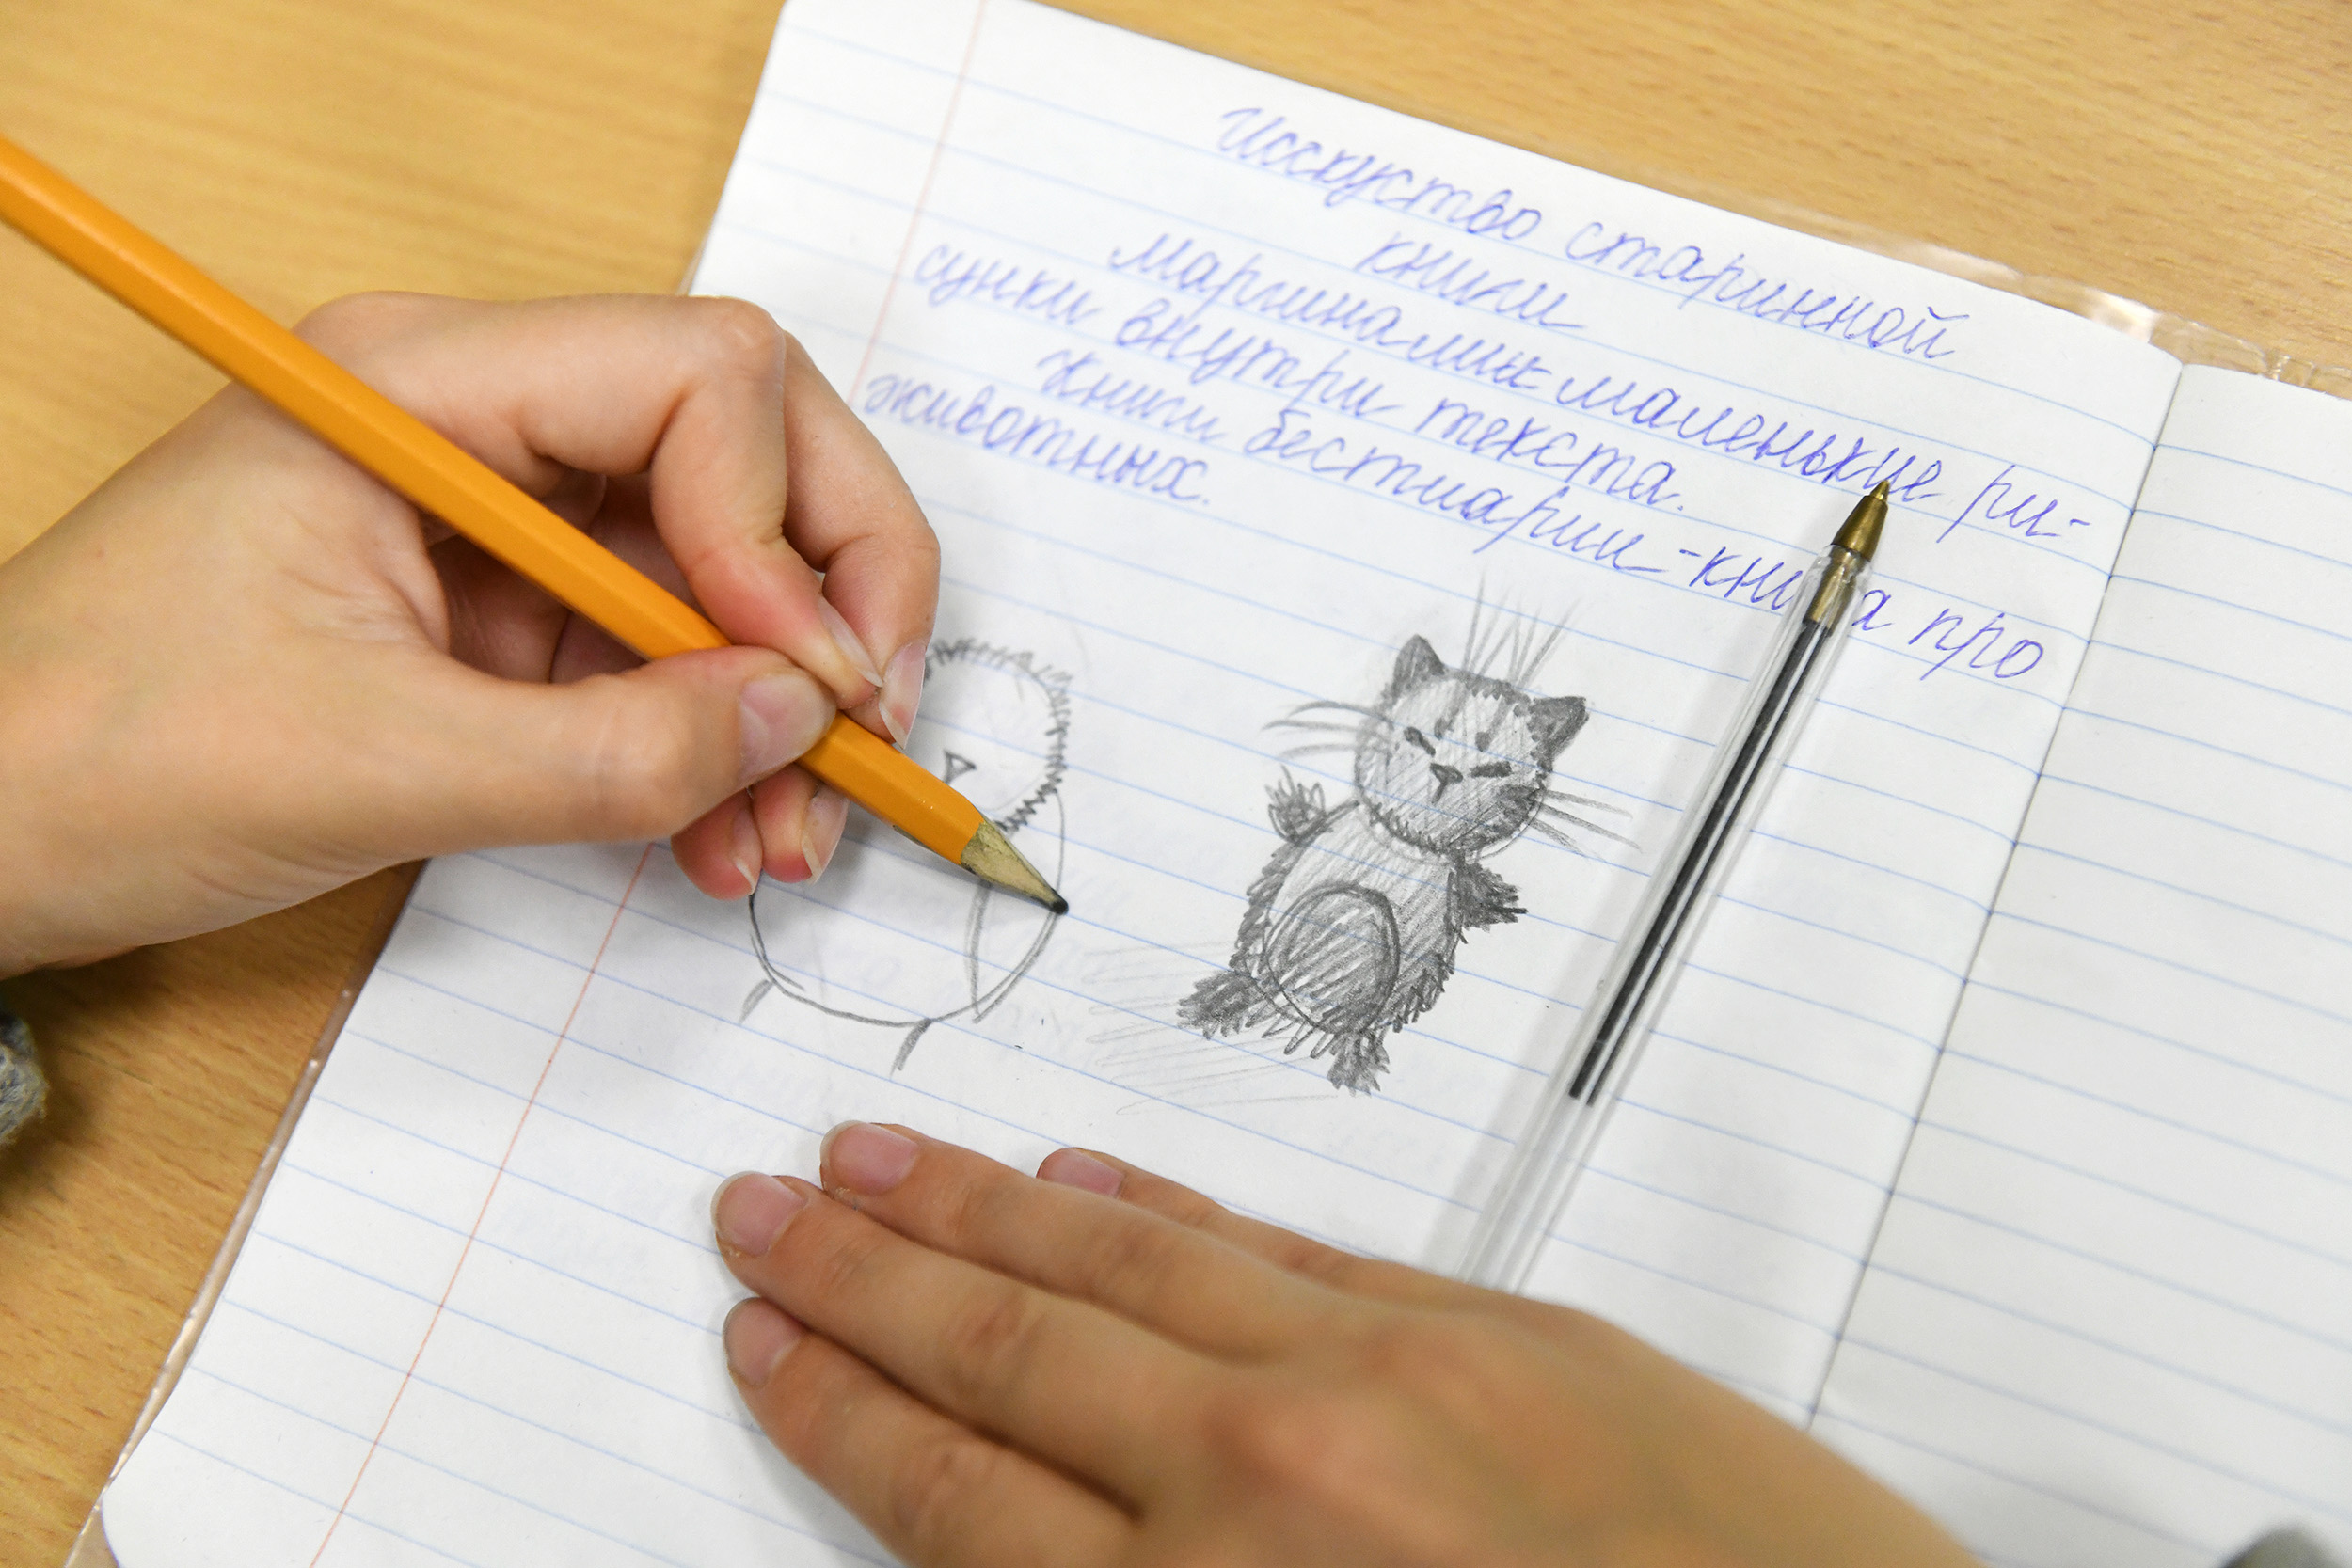 Исскуство старинной
книги
Маргиналии маленькие ри-
сунки внутри текста.
Книги бестиарии -книга про
животных.